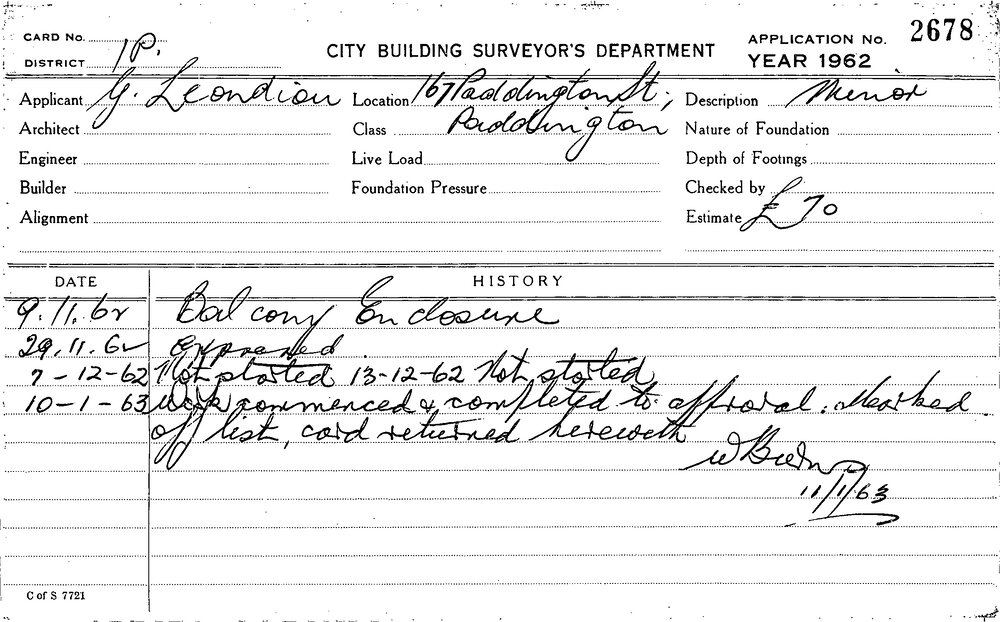 CARD No.
1P.
DISTRICT
CITY BUILDING SURVEYOR'S DEPARTMENT
APPLICATION No. 2678
YEAR 1962
Applicant G. Leondiou Location 167 Paddington St; Description Minor
Architect Class Paddington Nature of Foundation
Engineer Live Load Depth of Footings
Builder Foundation Pressure Checked by
Alignment Estimate £70
DATE HISTORY
9.11.62 Balcony Enclosure
29.11.62 Approved.
7-12-62 Not started 13-12-62 Not started
10-1-63 Work commenced & completed to approval. Marked
off list, card returned herewith
W
11/1/63
C of S 7721